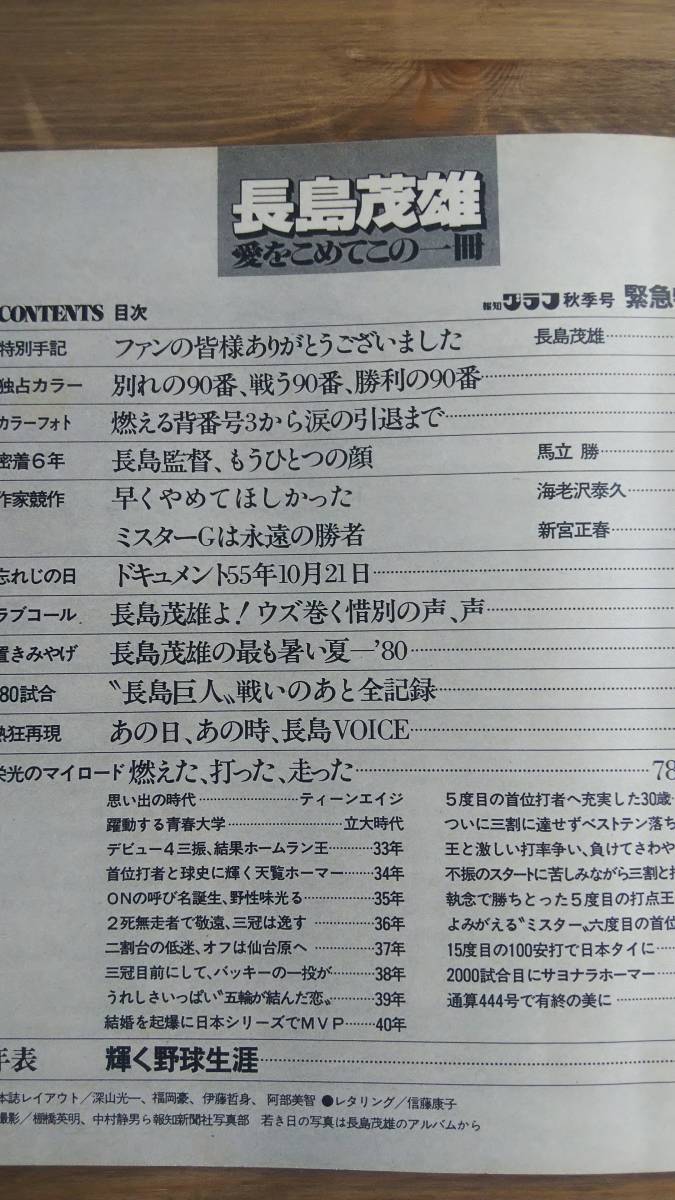 長島茂雄
愛をこめてこの一冊
CONTENTS 目次
報知グラフ 秋季号 緊急
特別手記 ファンの皆様ありがとうございました 長島茂雄
独占カラー 別れの90番、戦う90番、勝利の90番
カラーフォト 燃える背番号3から涙の引退まで
密着6年 長島監督、もうひとつの顔 馬立 勝
作家競作 早くやめてほしかった 海老沢泰久
ミスターGは永遠の勝者 新宮正春
忘れじの日 ドキュメント55年10月21日
ラブコール 長島茂雄よ!ウズ巻く惜別の声、声
置きみやげ 長島茂雄の最も暑い夏―'80
80試合 〝長島巨人〟戦いのあと全記録
熱狂再現 あの日、あの時、長島VOICE
栄光のマイロード 燃えた、打った、走った 78
思い出の時代 ティーンエイジ
躍動する青春大学 立大時代
デビュー4三振、結果ホームラン王 33年
首位打者と球史に輝く天覧ホーマー 34年
ONの呼び名誕生、野性味光る 35年
2死無走者で敬遠、三冠は逸す 36年
二割台の低迷、オフは仙台原へ 37年
三冠目前にして、バッキーの一投が 38年
うれしさいっぱい〝五輪が結んだ恋〟 39年
結婚を起爆に日本シリーズでMVP 40年
5度目の首位打者へ充実した30歳
ついに三割に達せずベストテン落ち
王と激しい打率争い、負けてさわや
不振のスタートに苦しみながら三割と打
執念で勝ちとった5度目の打点王
よみがえる〝ミスター〟六度目の首位
15度目の100安打で日本タイに
2000試合目にサヨナラホーマー
通算444号で有終の美に
年表 輝く野球生涯
本誌レイアウト/深山光一、福岡豪、伊藤哲身、阿部美智 ●レタリング/信藤康子
撮影/棚橋英明、中村静男ら報知新聞社写真部 若き日の写真は長島茂雄のアルバムから